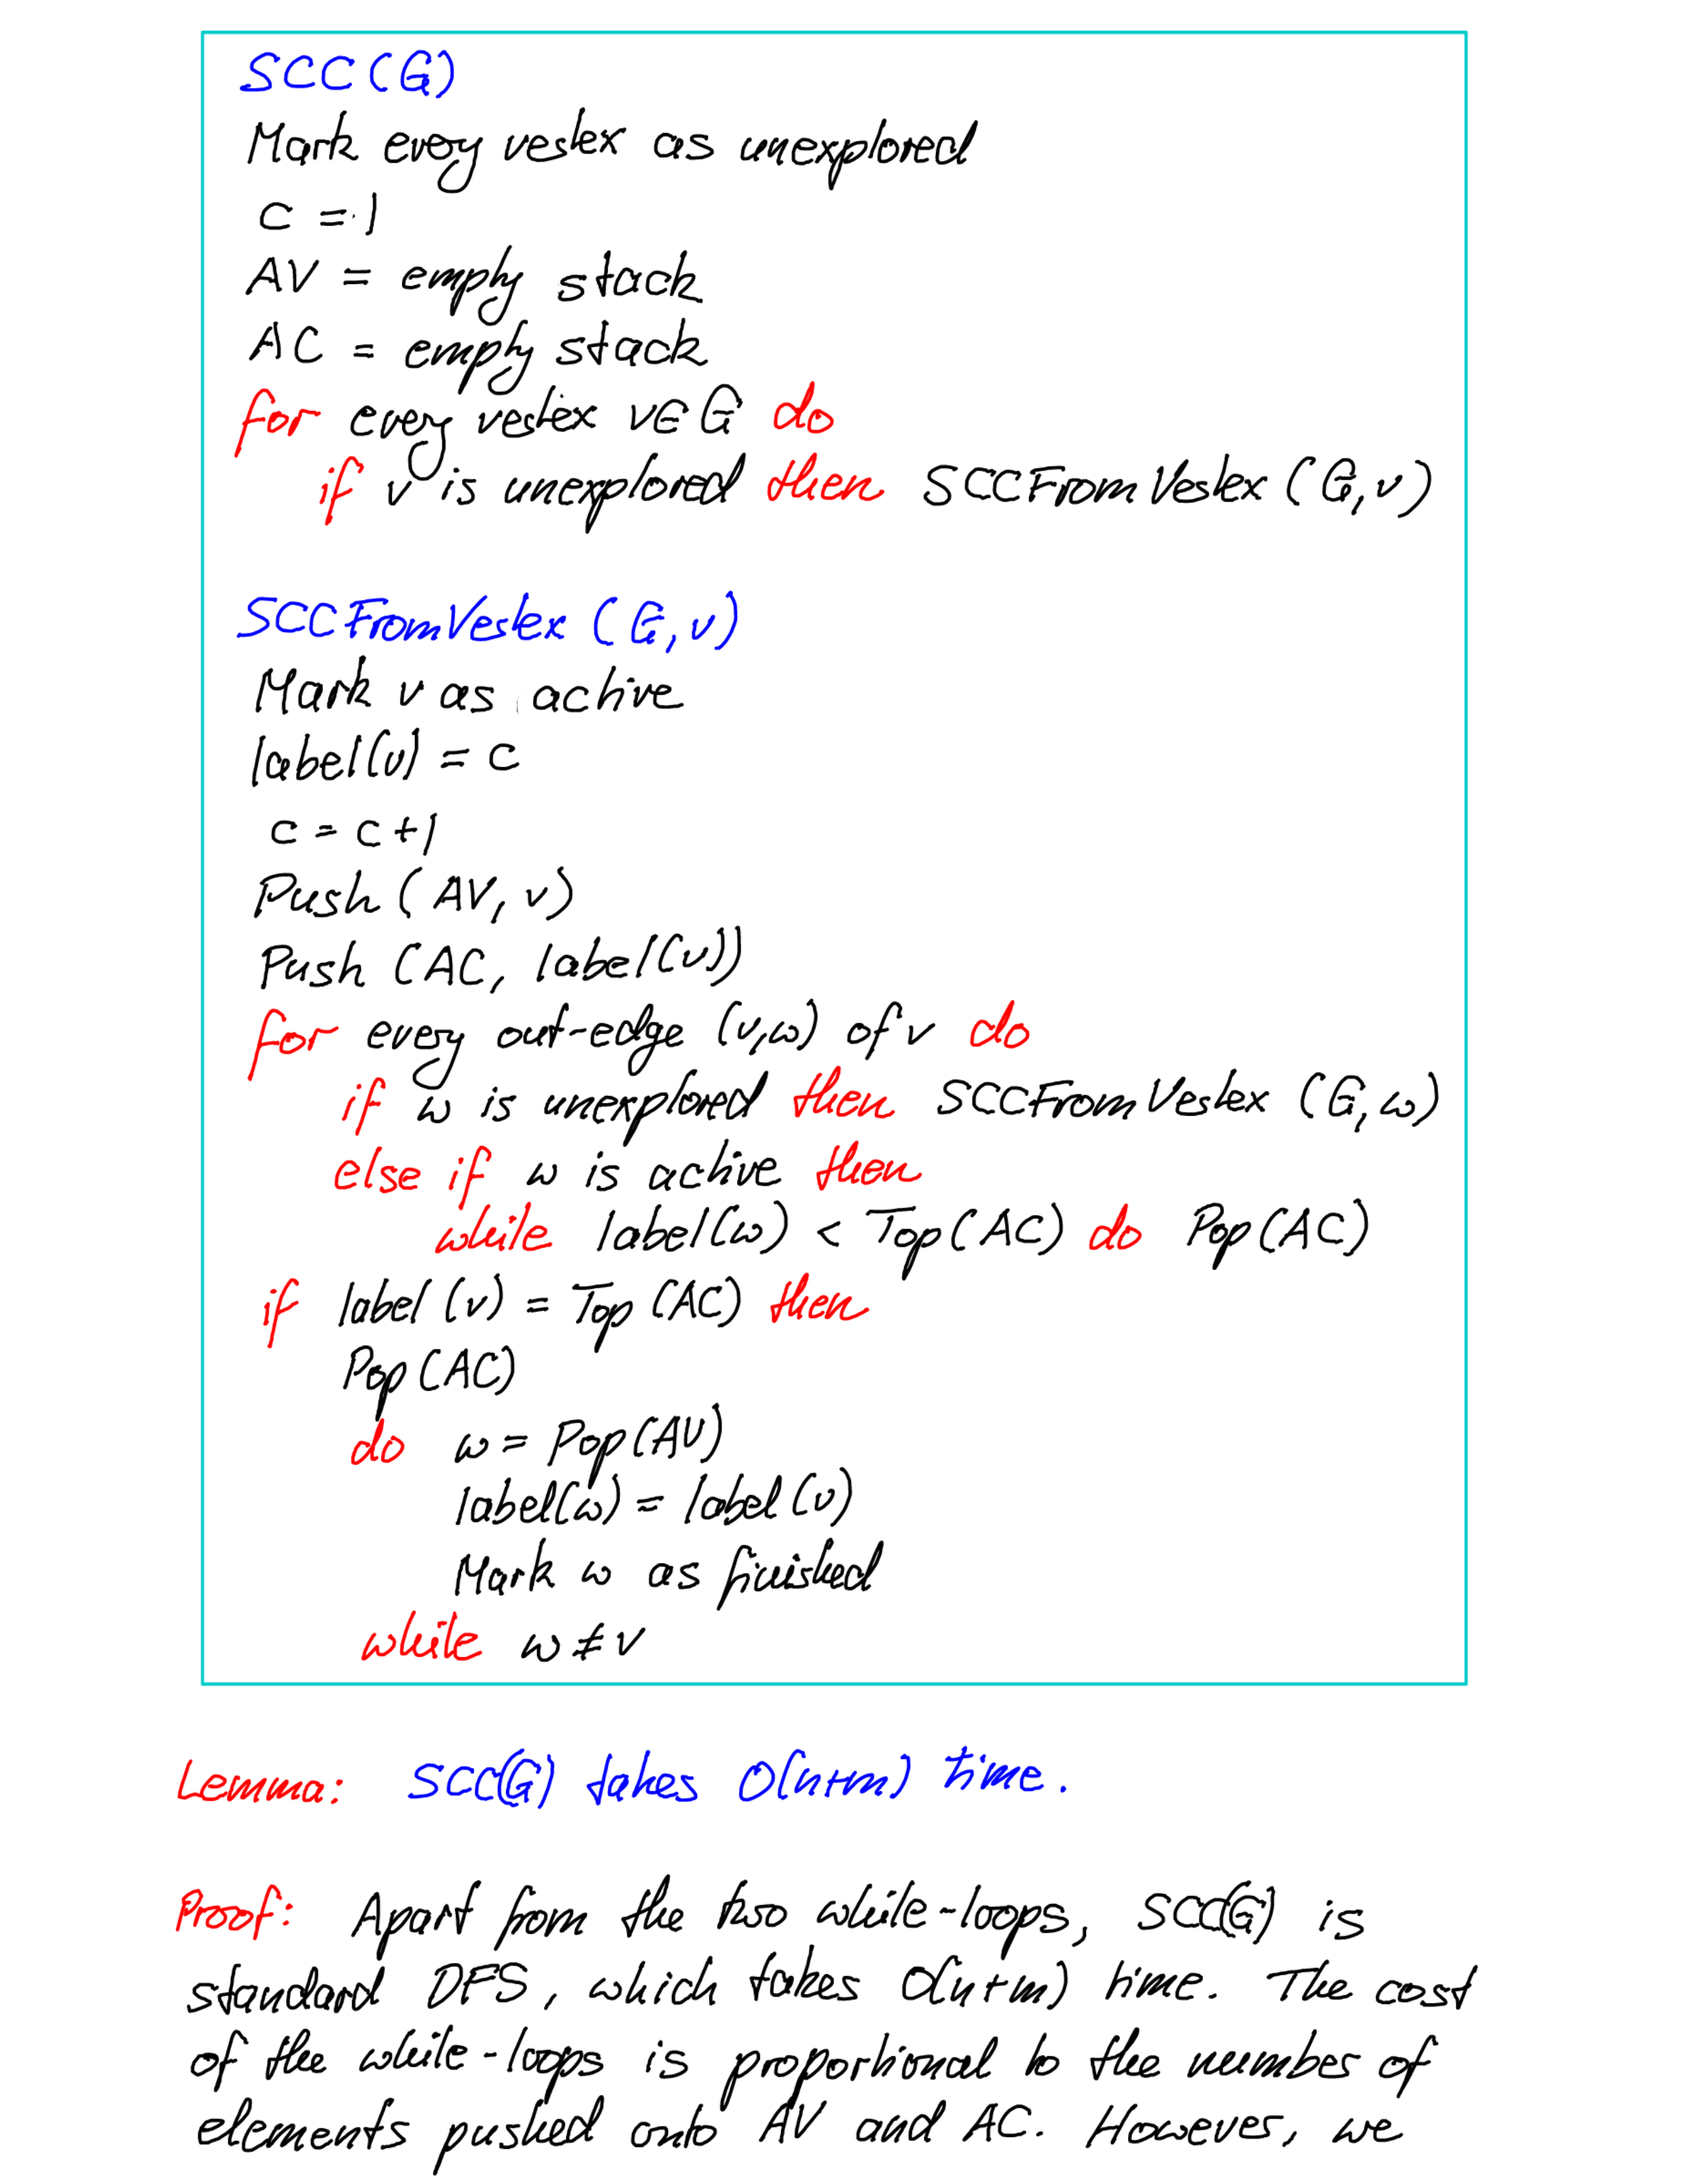 SCC(G)
Mark every vertex as unexplored
c = 1
AV = empty stack
AC = empty stack
for every vertex v∈G do
if v is unexplored then SCCFromVertex (G,v)
SCCFromVertex (G,v)
Mark v as active
label(v) = c
c = c+1
Push (AV, v)
Push (AC, label(v))
for every out-edge (v,w) of v do
if w is unexplored then SCCFromVertex (G,w)
else if w is active then
while label(w) < Top(AC) do Pop(AC)
if label (v) = Top (AC) then
Pop (AC)
do w = Pop(AV)
label(w) = label(v)
Mark w as finished
while w ≠ v
Lemma: SCC(G) takes O(n+m) time.
Proof: Apart from the two while-loops, SCC(G) is
standard DFS, which takes O(n+m) time. The cost
of the while-loops is proportional to the number of
elements pushed onto AV and AC. However, we